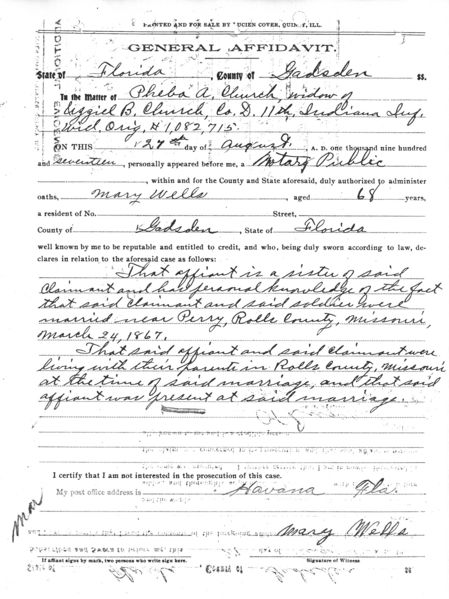 PRINTED AND FOR SALE BY LUCIEN COVER, QUINCY, ILL.
GENERAL AFFIDAVIT.
State of Florida, County of Gadsden SS.
In the Matter of Pheba A. Church, widow of
B. Church, Co. D. 11th, Indiana Inf.
Wid. Orig. #1,082,715.
ON THIS 27th day of August, A. D. one thousand nine hundred
and seventeen, personally appeared before me, a Notary Public
, within and for the County and State aforesaid, duly authorized to administer
oaths, Mary Wells, aged 68 years,
a resident of No. Street,
County of Gadsden, State of Florida
well known by me to be reputable and entitled to credit, and who, being duly sworn according to law, de-
clares in relation to the aforesaid case as follows:
That affiant is a sister of said
Claimant and has personal knowledge of the fact
that said Claimant and said soldier were
married near Perry, Rolls County, Missouri,
March 24, 1867.
That said affiant and said Claimant were
living with their parents in Rolls County, Missouri
at the time of said marriage, and that said
affiant was present at said marriage.
I certify that I am not interested in the prosecution of this case.
My post office address is Havana Fla.
Mary Wells
If affiant signs by mark, two persons who write sign here. Signature of Witness